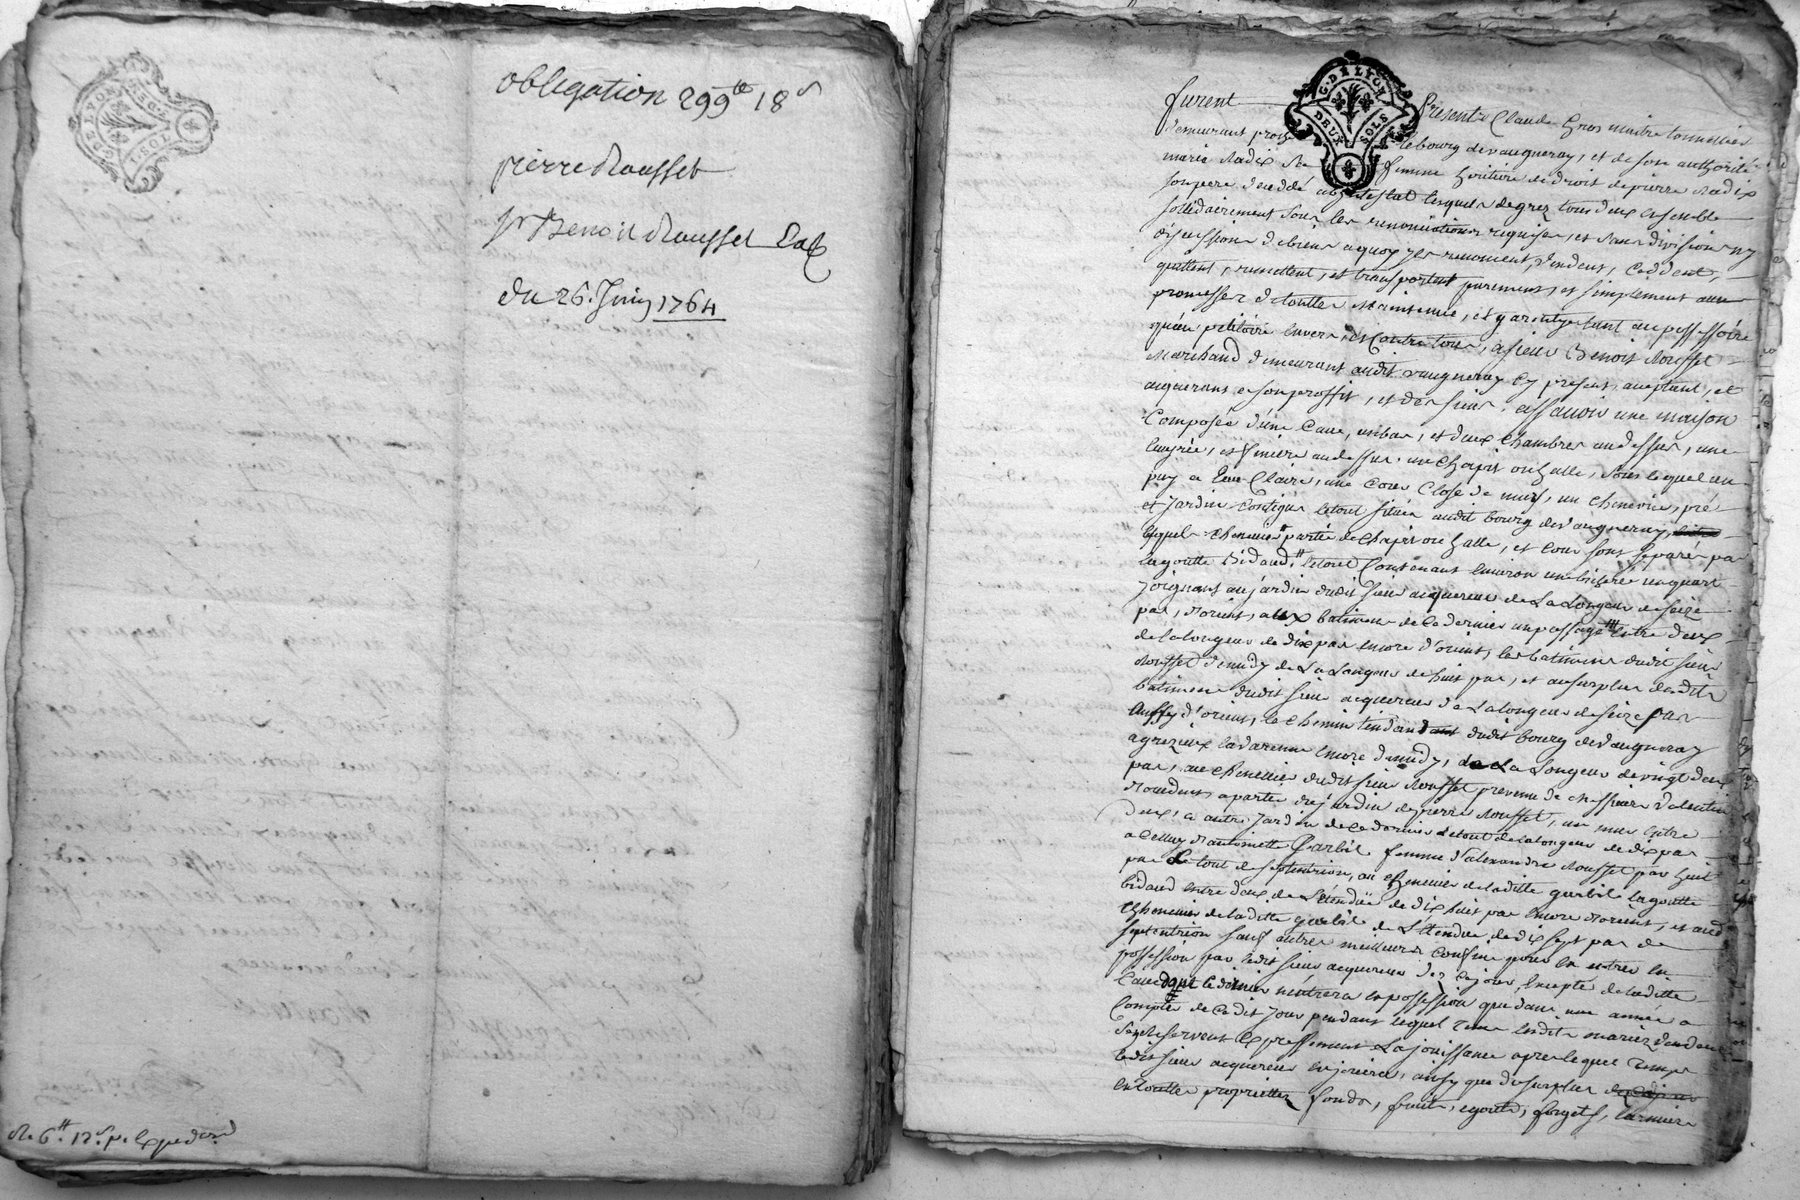 G. DE LYON DEUX SOLS
obligation 299 tt 18 s
pierre Rousset
sr Benoit Rousset
du 26. Juin 1764
G. DE LYON DEUX SOLS
furent Presents Claude Gros maitre tonnellier
demeurant lebourg devaugneray, et desone authorité
marie Radix sa femme heritiere dedroit depierre Radix
sonpere decedé abintestat lesquels degrez tous deux ensemble
sollidairement sous les renonciations requises, et sans division ny
discussion debiens aquoy ils renoncent, vendent, ceddent,
quittent, remettent, et transportent purement, et simplement avec
promesse detoutte maintenue, et garentye tant aupossessoire
quau petitoire envers, et contre tous, asieur Benoit Rousset
Marchand demeurant audit vaugneray cy present, aceptant, et
aquerant asonproffit, et des siens, assavoir une maison
Composée d'une Cave, enbas, et deux chambres audessus, une
et feniere audessus, un chapit ou halle, sous lequel un
puy a Eau Claire, une Cour Close de murs, un chenevier, pré
et Jardin Contigus letout situés audit bourg devaugneray,
lequel chenevier partie dechapit ou halle, et cour sont separés par
lagoutte Bidaud, letout Contenant environ un bicheré un quart
Joignant aujardin dudit sieur acquereur de La Longeur deseize
pas, dorient, aux batimens de ce dernier un passage entre deux
delalongeur de dix pas encore d'orient, les batimens dudit sieur
Rousset demidy de La Longeur de huit pas, et ausurplus desdits
batimens dudit sieur acquereur de La longeur deseize pas
aussy d'orient, le chemin tendant dudit bourg devaugneray
agrezieux lavarenne encore demidy, de La Longeur devingt deux
pas, au chenevier dudit sieur Rousset prevenu de
apartie dujardin depierre Rousset, un mur entre
deux, a autre Jardin de ce dernier letout delalongeur dedix pas
acelluy d'antoinette Garbil femme d'alexandre Rousset par huit
pas Letout de septentrion, au chenevier deladitte garbil lagoutte
bidaud entre deux de L'étendüe de dix huit pas encore dorient, et audit
chenevier deladitte garbil de L'étendue de dix sept pas de
septentrion sauf autres meilleurs confins pour en entrer en
possession par ledit sieur acquereur dez cejour, Excepté deladitte
Cave dont le dernier nentrera enpossession que dans une année a
Compter de cedit jour pendant lequel tems lesdits mariez vendeurs
sen reservent Expressement La jouissance apres lequel temps
ledit sieur acquereur enjouira, ainsy que dusurplus
entoutte proprietté, fonds, fruits, egouts, forgets, larmiers